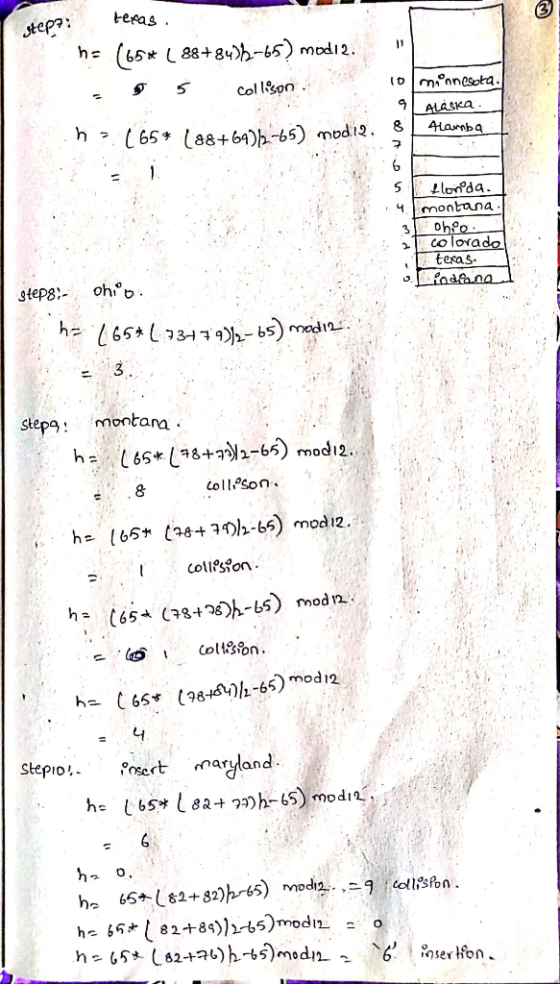 ③
step7: texas.
h= (65* (88+84)/2-65) mod12.
= 5 collison.
h = (65* (88+69)/2-65) mod12.
= 1
11
10 minnesota.
9 Alaska.
8 Alamba
7
6
5 florida.
4 montana.
3 ohio.
2 colorado
1 texas.
0 indiana
step8:- ohio.
h= (65*(73+79)/2-65) mod12.
= 3.
step9: montana.
h= (65*(78+77)/2-65) mod12.
= 8 collison.
h= (65* (78+79)/2-65) mod12.
= 1 collision.
h= (65* (78+78)/2-65) mod12.
= 1 collision.
h= (65* (78+84)/2-65) mod12
= 4
step10:- insert maryland.
h= (65*(82+77)/2-65) mod12.
= 6
h= 0.
h= 65*(82+82)/2-65) mod12. =9 collision.
h= 65*(82+89)/2-65) mod12 = 0
h= 65* (82+76)/2-65) mod12 = '6' insertion.